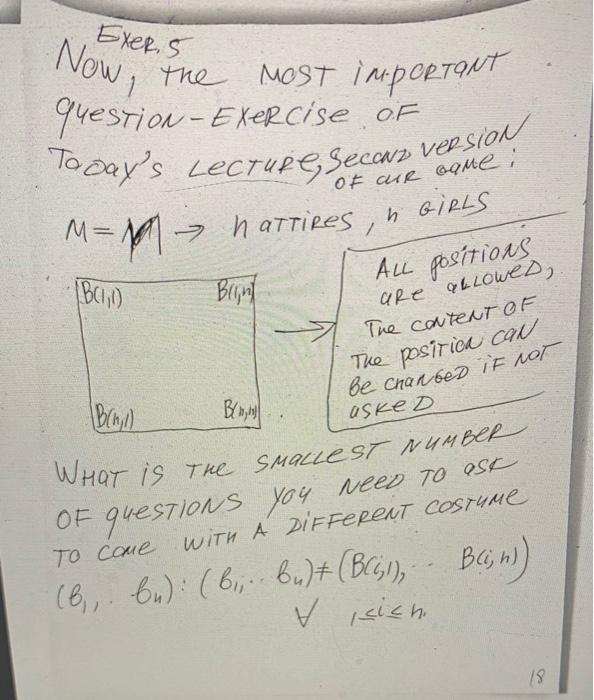 Exer. 5
Now, the most important
question-Exercise of
Today's Lecture, Second version
of our game:
M=n → n attires, n Girls
B(1,1) B(1,n)
B(n,1) B(n,n)
All positions
are allowed,
The content of
The position can
be changed if not
asked
What is the smallest number
of questions you need to ask
to come with a different costume
(b₁,.. bₙ): (b₁,.. bₙ)≠(B(i,1),.. B(i,n))
∀ 1≤i≤n.
18